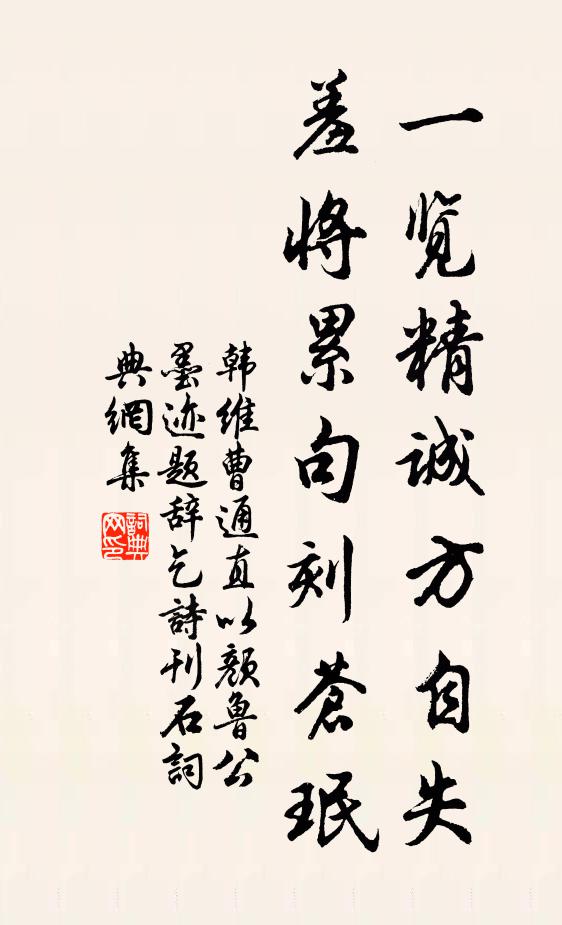 一览精诚方自失
羞将累句刻苍珉
韩维曹通直以颜鲁公
墨迹题辞乞詩刊石詞
典網集
詞典
网印